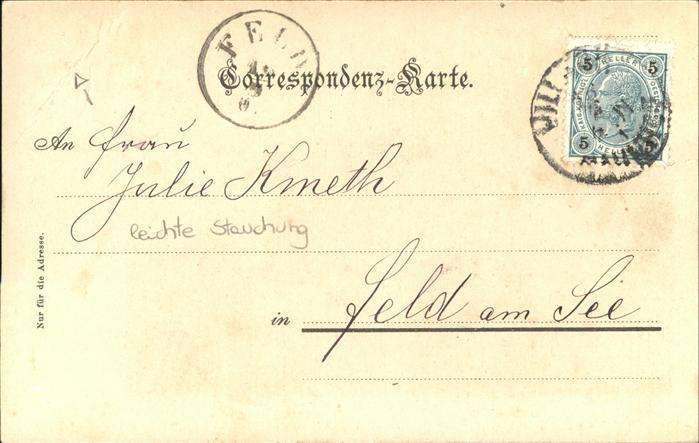 FELD
Correspondenz-Karte.
5 HELLER 5
5 HELLER 5
An Frau
Julie Kmeth
leichte Stauchung
Nur für die Adresse.
in Feld am See